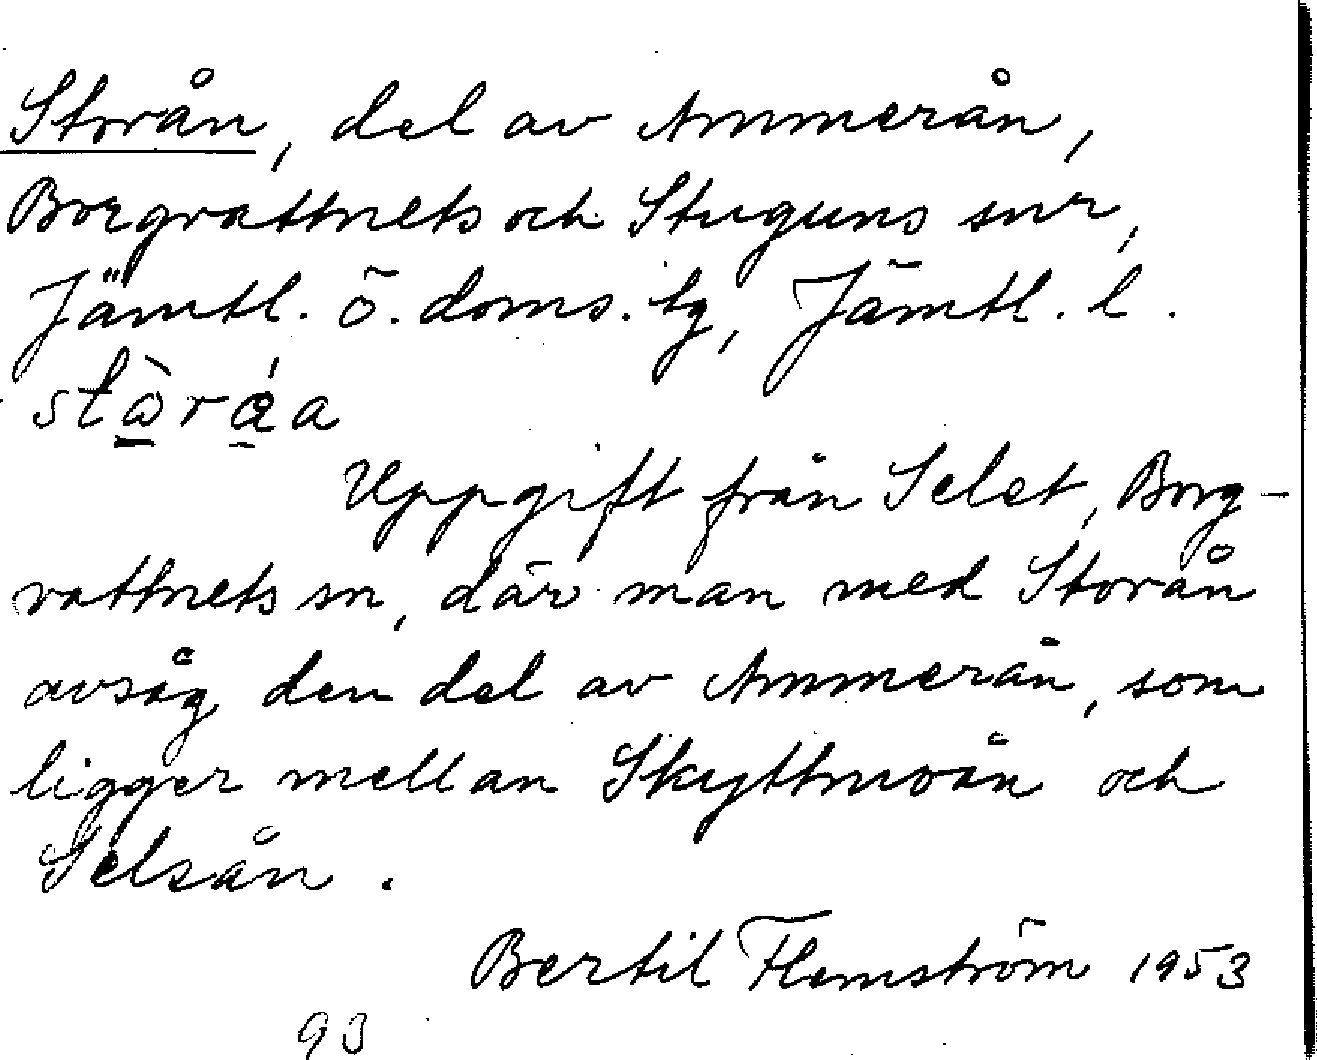 Storån, del av Ammerån,
Borgvattnets och Stuguns snr,
Jämtl. ö. doms. tg, Jämtl. l.
Uppgift från Selet, Borg-
vattnets sn, där man med Storån
avsåg den del av Ammerån, som
ligger mellan Skyttmoån och
Selsån.
Bertil Flemström 1953
93